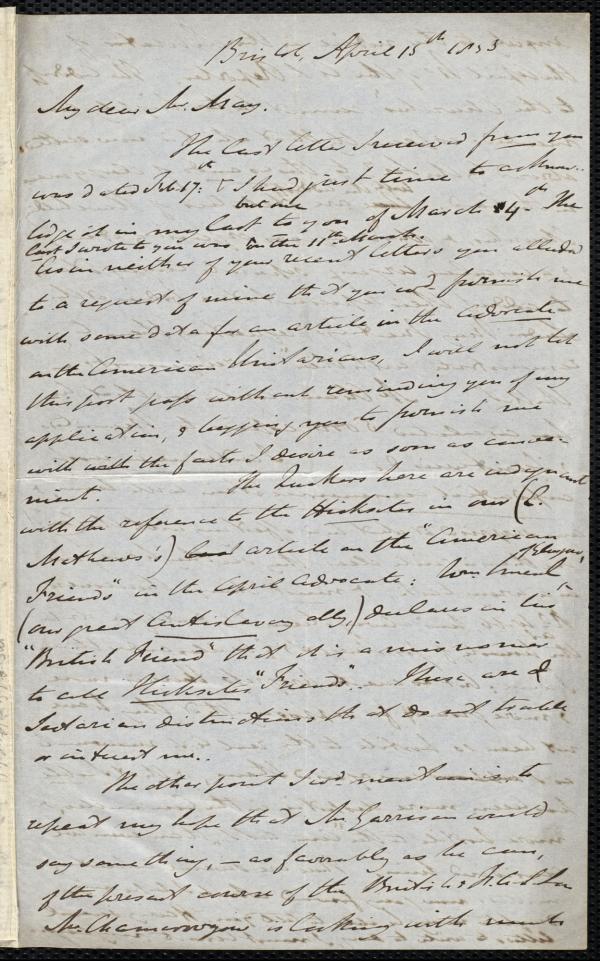 Bristol, April 15th 1853
My dear Mr. May.
The last letter I received from you
was dated Feb. 17th: & I had just time to acknow-
but one
ledge it in my last to you of March 4th. The
last I wrote to you was on the 11th
As in neither of your recent letters you alluded
to a request of mine that you wd. furnish me
with some data for an article in the Advocate
on the American Unitarians, I will not let
this post pass without reminding you of my
application, & begging you to furnish me
with with the facts I desire as soon as conve-
nient. The Quakers here are indignant
with the reference to the Hicksites in our (E.
Mathews's) article on the "American
Friends" in the April Advocate: Wm
(our great Antislavery ally,) declares in his
"British Friend" that it is a misnomer
to call Hicksites "Friends". These are
Sectarian distinctions that do not trouble
or interest me..
The other point I wd. mention is to
repeat my hope that Mr. Garrison would
say something, – as favorably as he can,
of the present course of the British & F. A. S. Soc
Mr. Chamerovzow is looking with much